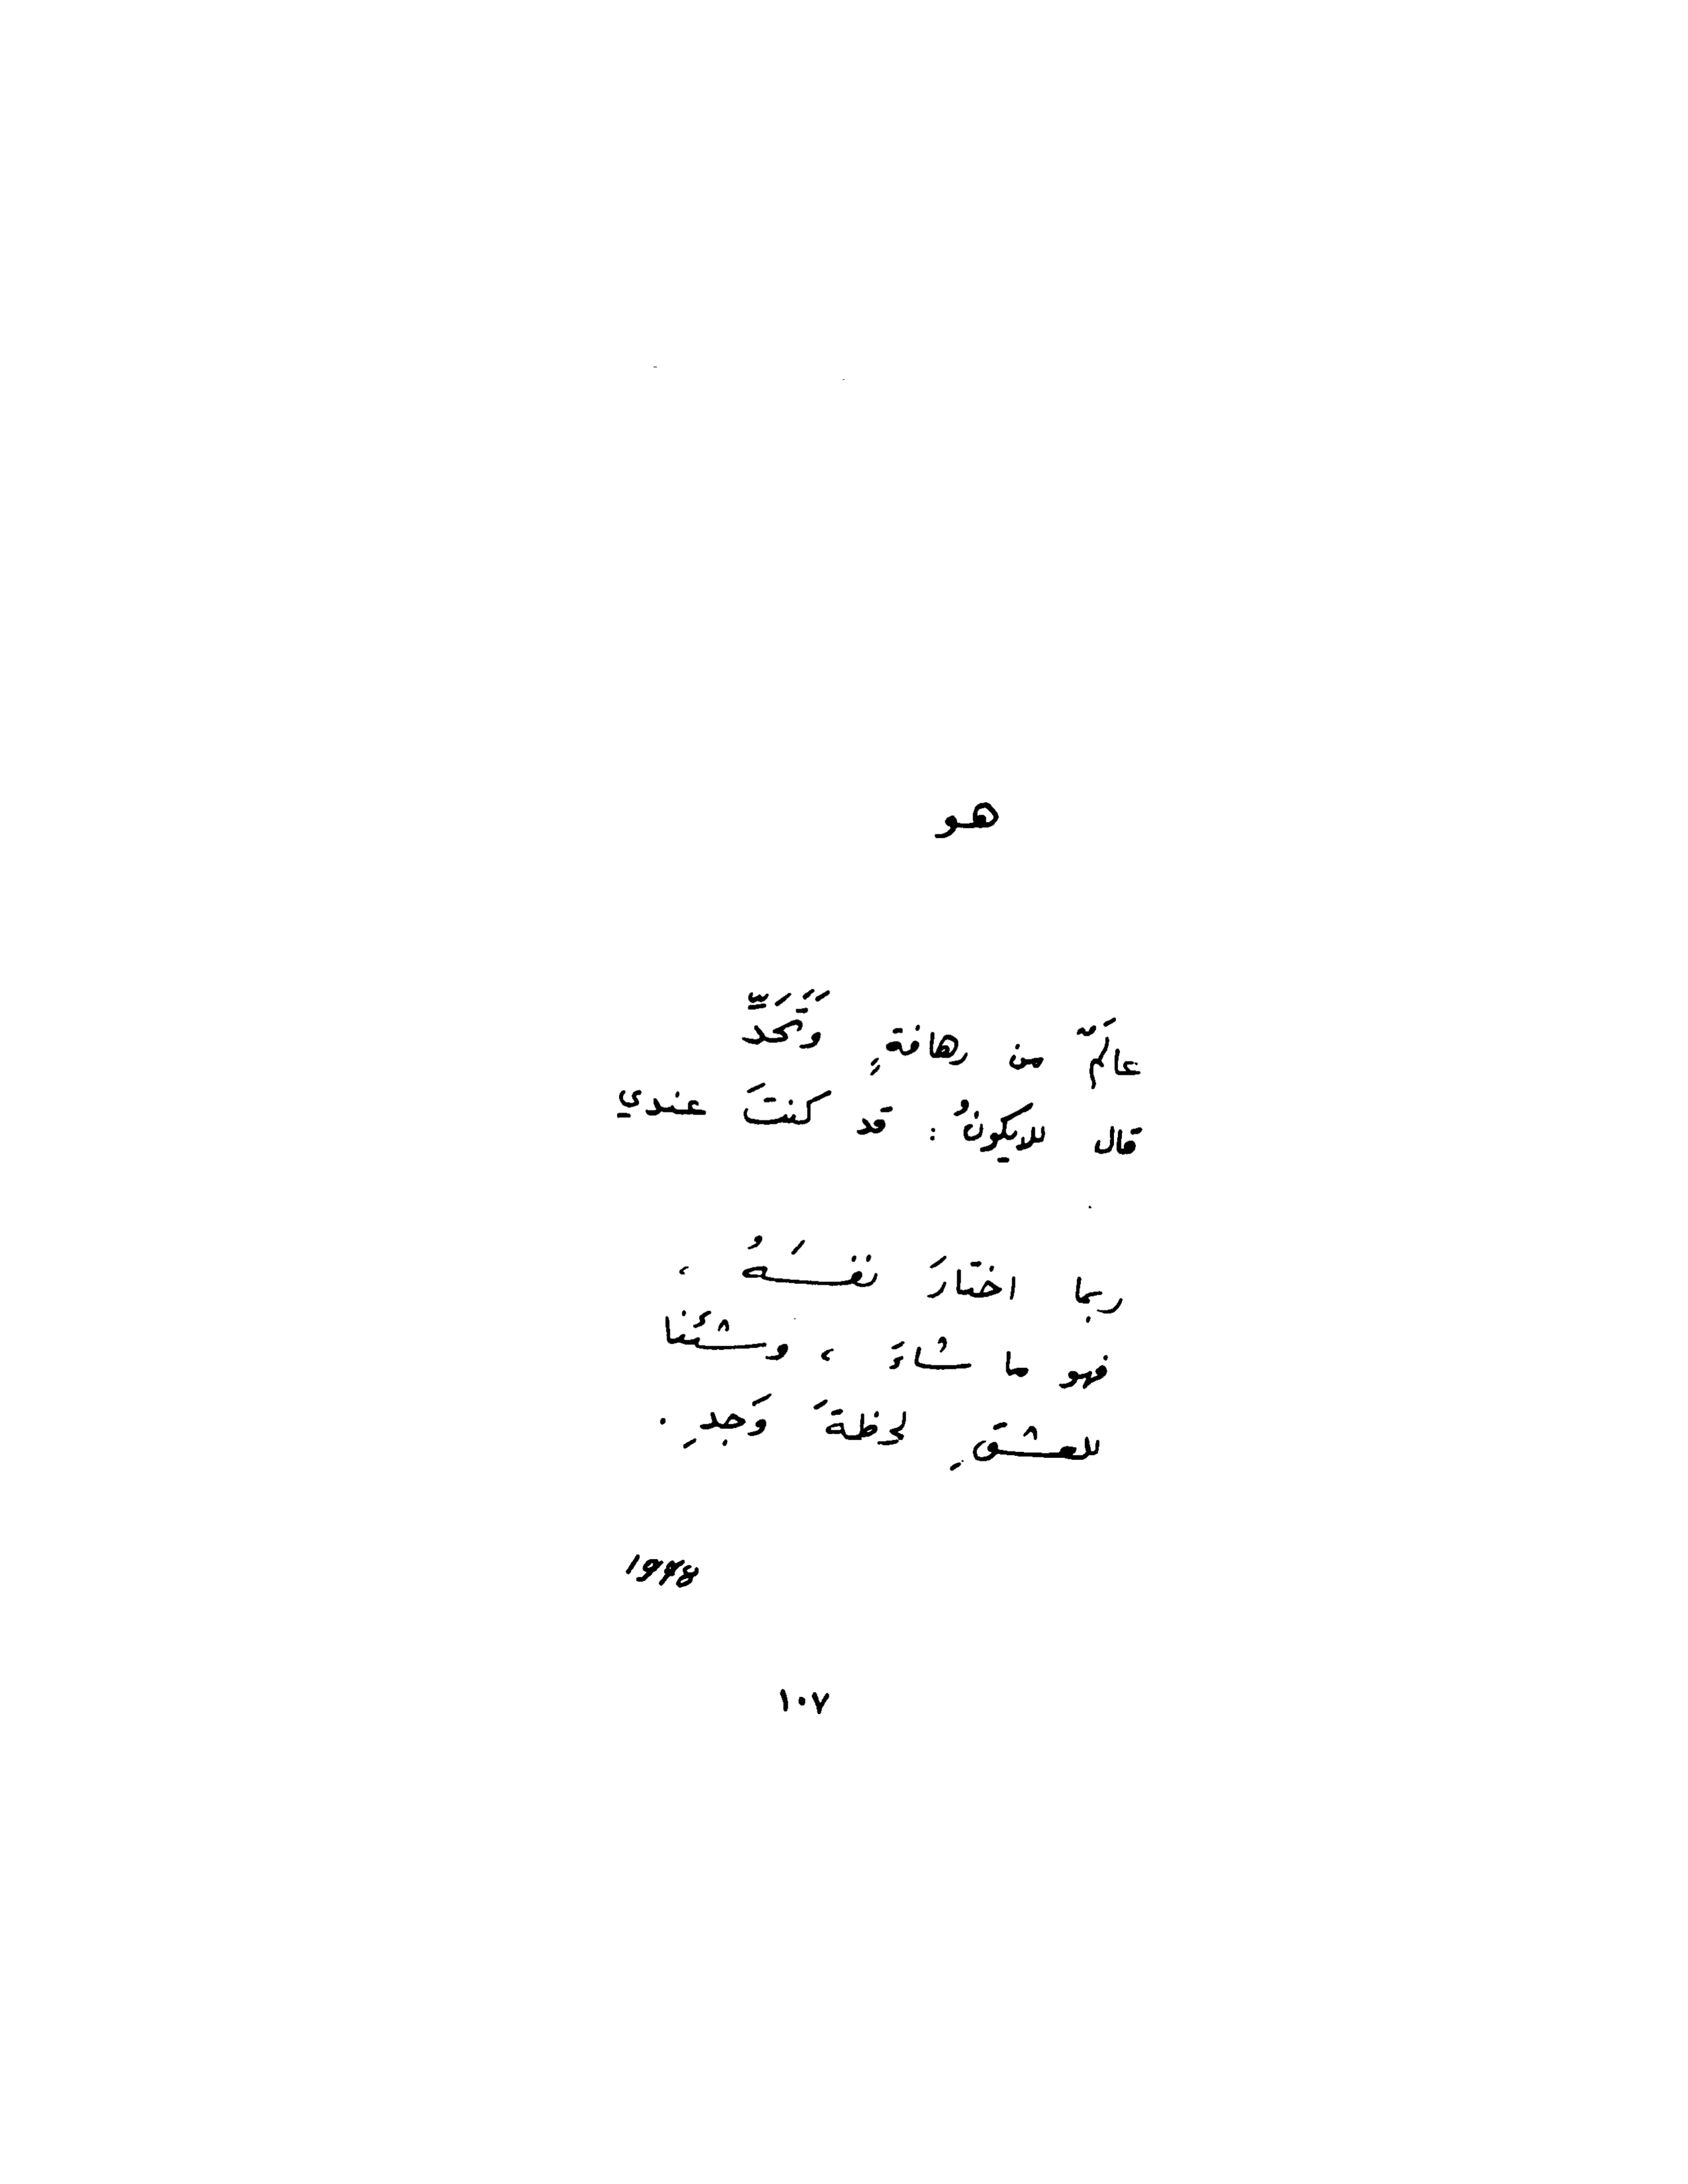 هو
عالَمٌ من رهافةٍ وَتَحَدٍّ
قال للايكونُ : قد كنتَ عندي
ربما اختارَ نفسَهُ ،
فهو ما شاءَ ، وشئنا
للعشقِ لحظةَ وَجدِ .
١٠٧